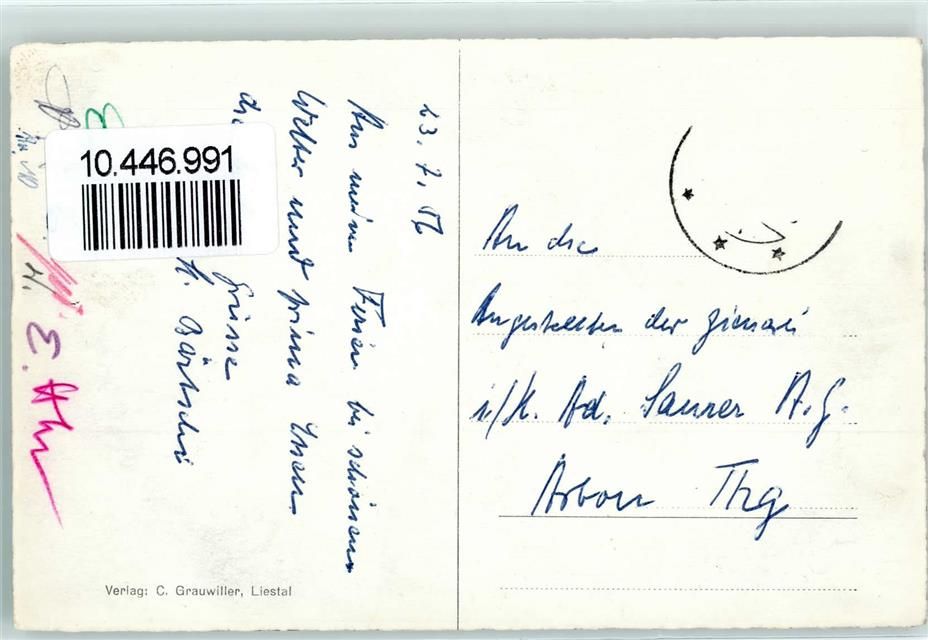 23. 7. 56
Aus meinen Ferien bei schönem
Wetter und prima Essen
die
Grüsse
H. Bärtschi
10.446.991
E. Ahr
An die
Angestellten der Giesserei
i/H. Ad. Saurer A.G.
Arbon Thg
Verlag: C. Grauwiller, Liestal